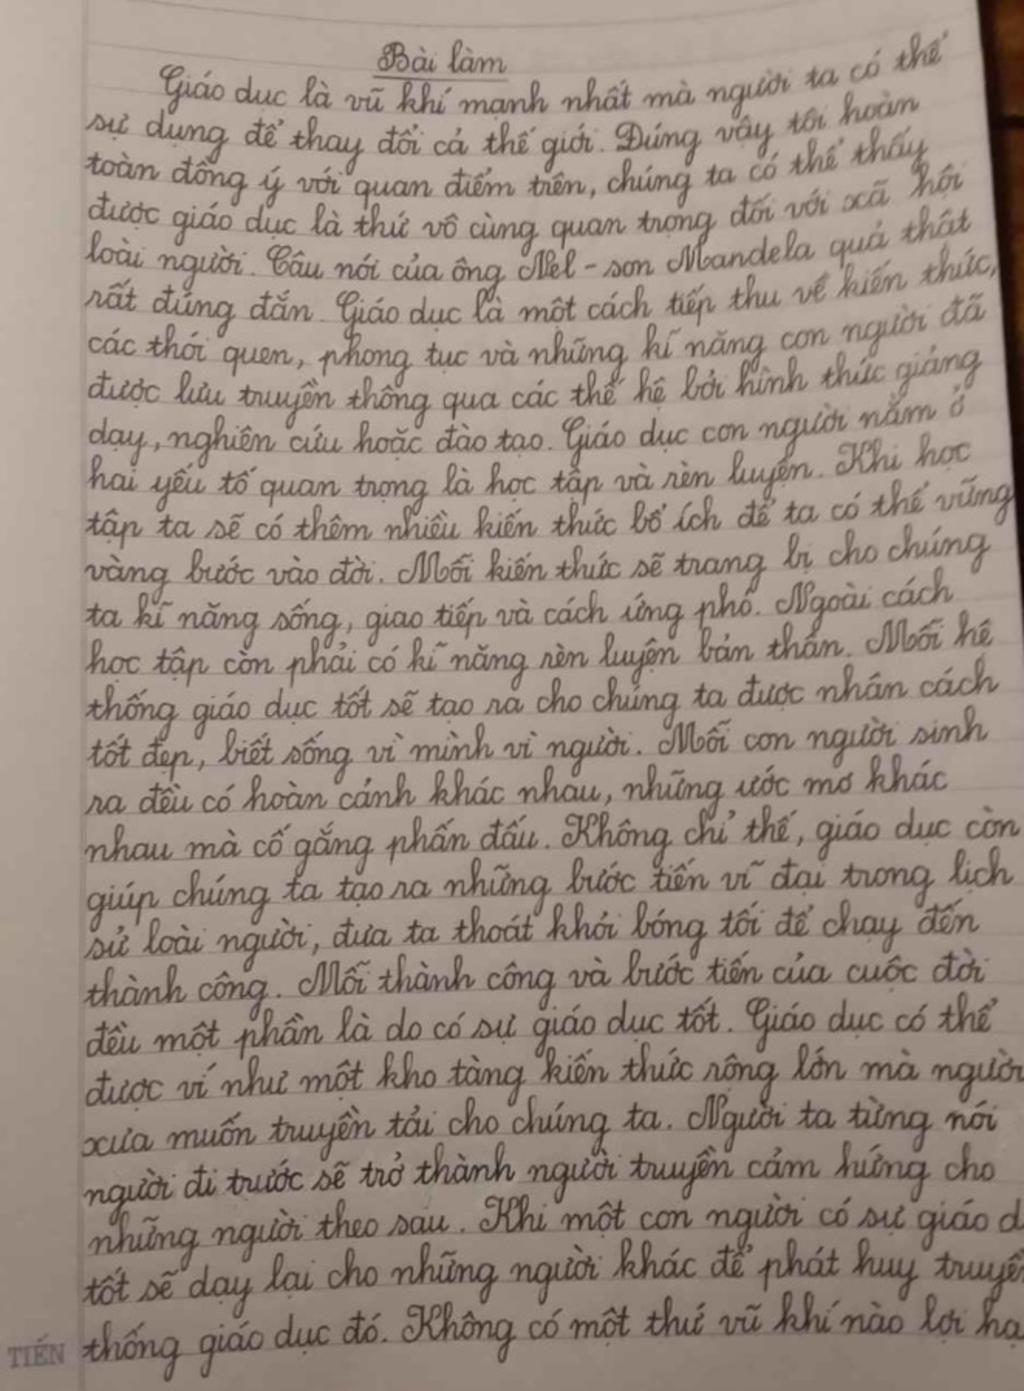 Bài làm
Giáo dục là vũ khí mạnh nhất mà người ta có thể
sự dụng để thay đổi cả thế giới. Đúng vậy tôi hoàn
toàn đồng ý với quan điểm trên, chúng ta có thể thấy
được giáo dục là thứ vô cùng quan trọng đối với xã hội
loài người. Câu nói của ông Nel-son Mandela quả thật
rất đúng đắn. Giáo dục là một cách tiếp thu về kiến thức,
các thói quen, phong tục và những kĩ năng con người đã
được lưu truyền thông qua các thế hệ bởi hình thức giảng
dạy, nghiên cứu hoặc đào tạo. Giáo dục con người nằm ở
hai yếu tố quan trọng là học tập và rèn luyện. Khi học
tập ta sẽ có thêm nhiều kiến thức bổ ích để ta có thể vững
vàng bước vào đời. Mỗi kiến thức sẽ trang bị cho chúng
ta kĩ năng sống, giao tiếp và cách ứng phó. Ngoài cách
học tập còn phải có kĩ năng rèn luyện bản thân. Mỗi hệ
thống giáo dục tốt sẽ tạo ra cho chúng ta được nhân cách
tốt đẹp, biết sống vì mình vì người. Mỗi con người sinh
ra đều có hoàn cảnh khác nhau, những ước mơ khác
nhau mà cố gắng phấn đấu. Không chỉ thế, giáo dục còn
giúp chúng ta tạo ra những bước tiến vĩ đại trong lịch
sử loài người, đưa ta thoát khỏi bóng tối để chạy đến
thành công. Mỗi thành công và bước tiến của cuộc đời
đều một phần là do có sự giáo dục tốt. Giáo dục có thể
được ví như một kho tàng kiến thức rộng lớn mà người
xưa muốn truyền tải cho chúng ta. Người ta từng nói
người đi trước sẽ trở thành người truyền cảm hứng cho
những người theo sau. Khi một con người có sự giáo d
tốt sẽ dạy lại cho những người khác để phát huy truyề
thống giáo dục đó. Không có một thứ vũ khí nào lợi hạ
TIẾN